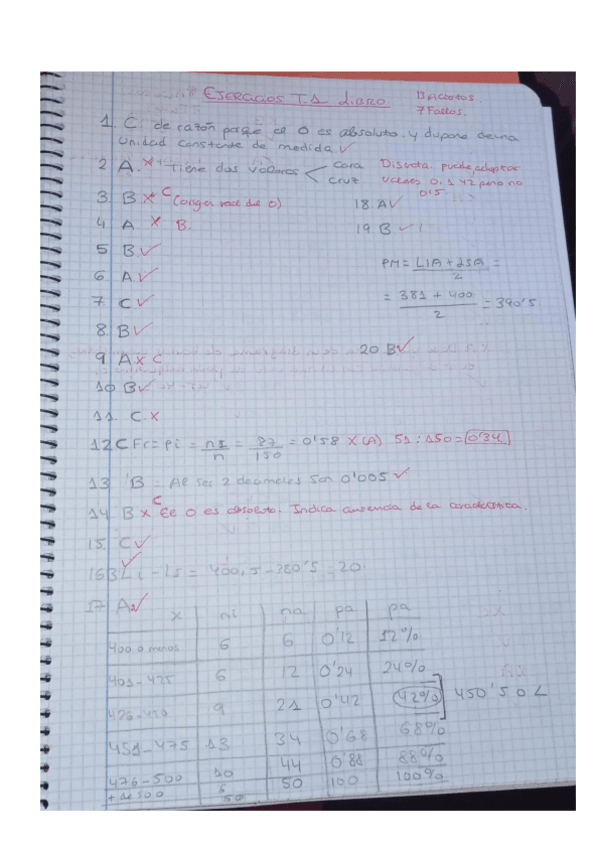 EJERCICIOS T.1 LIBRO.
13 Aciertos.
7 Fallos.
1. C. de razón porque el 0 es absoluto. y dispone de una
unidad constante de medida ✓
2 A. x Tiene dos valores < cara
cruz
Discreta. puede adoptar
valores 0, 1 y 2 pero no
0.5.
3. B x C (origen real del 0)
4 A x B.
5 B. ✓
6 A. ✓
7 C ✓
8. B ✓
9. A x C
10 B ✓
11. C. x
12 C Fr = pi = ni/n = 87/150 = 0'58 x (A) 51 : 150 = 0'34
13 B = Al ser 2 decimales son 0'005 ✓
14 B x C el 0 es absoluto. Indica ausencia de la característica.
15. C ✓
16 B Li - Ls = 400,5 - 380'5 = 20.
17 A ✓
18 A ✓
19 B ✓
PM = LIA + LSA / 2 =
= 381 + 400 / 2 = 390'5
20 B ✓
x ni na pa pa
400 o menos 6 6 0'12 12%
401-425 6 12 0'24 24%
426-450 9 21 0'42 42% 450'5 o L
451-475 13 34 0'68 68%
476-500 10 44 0'88 88%
+ de 500 6 50 100 100%
50